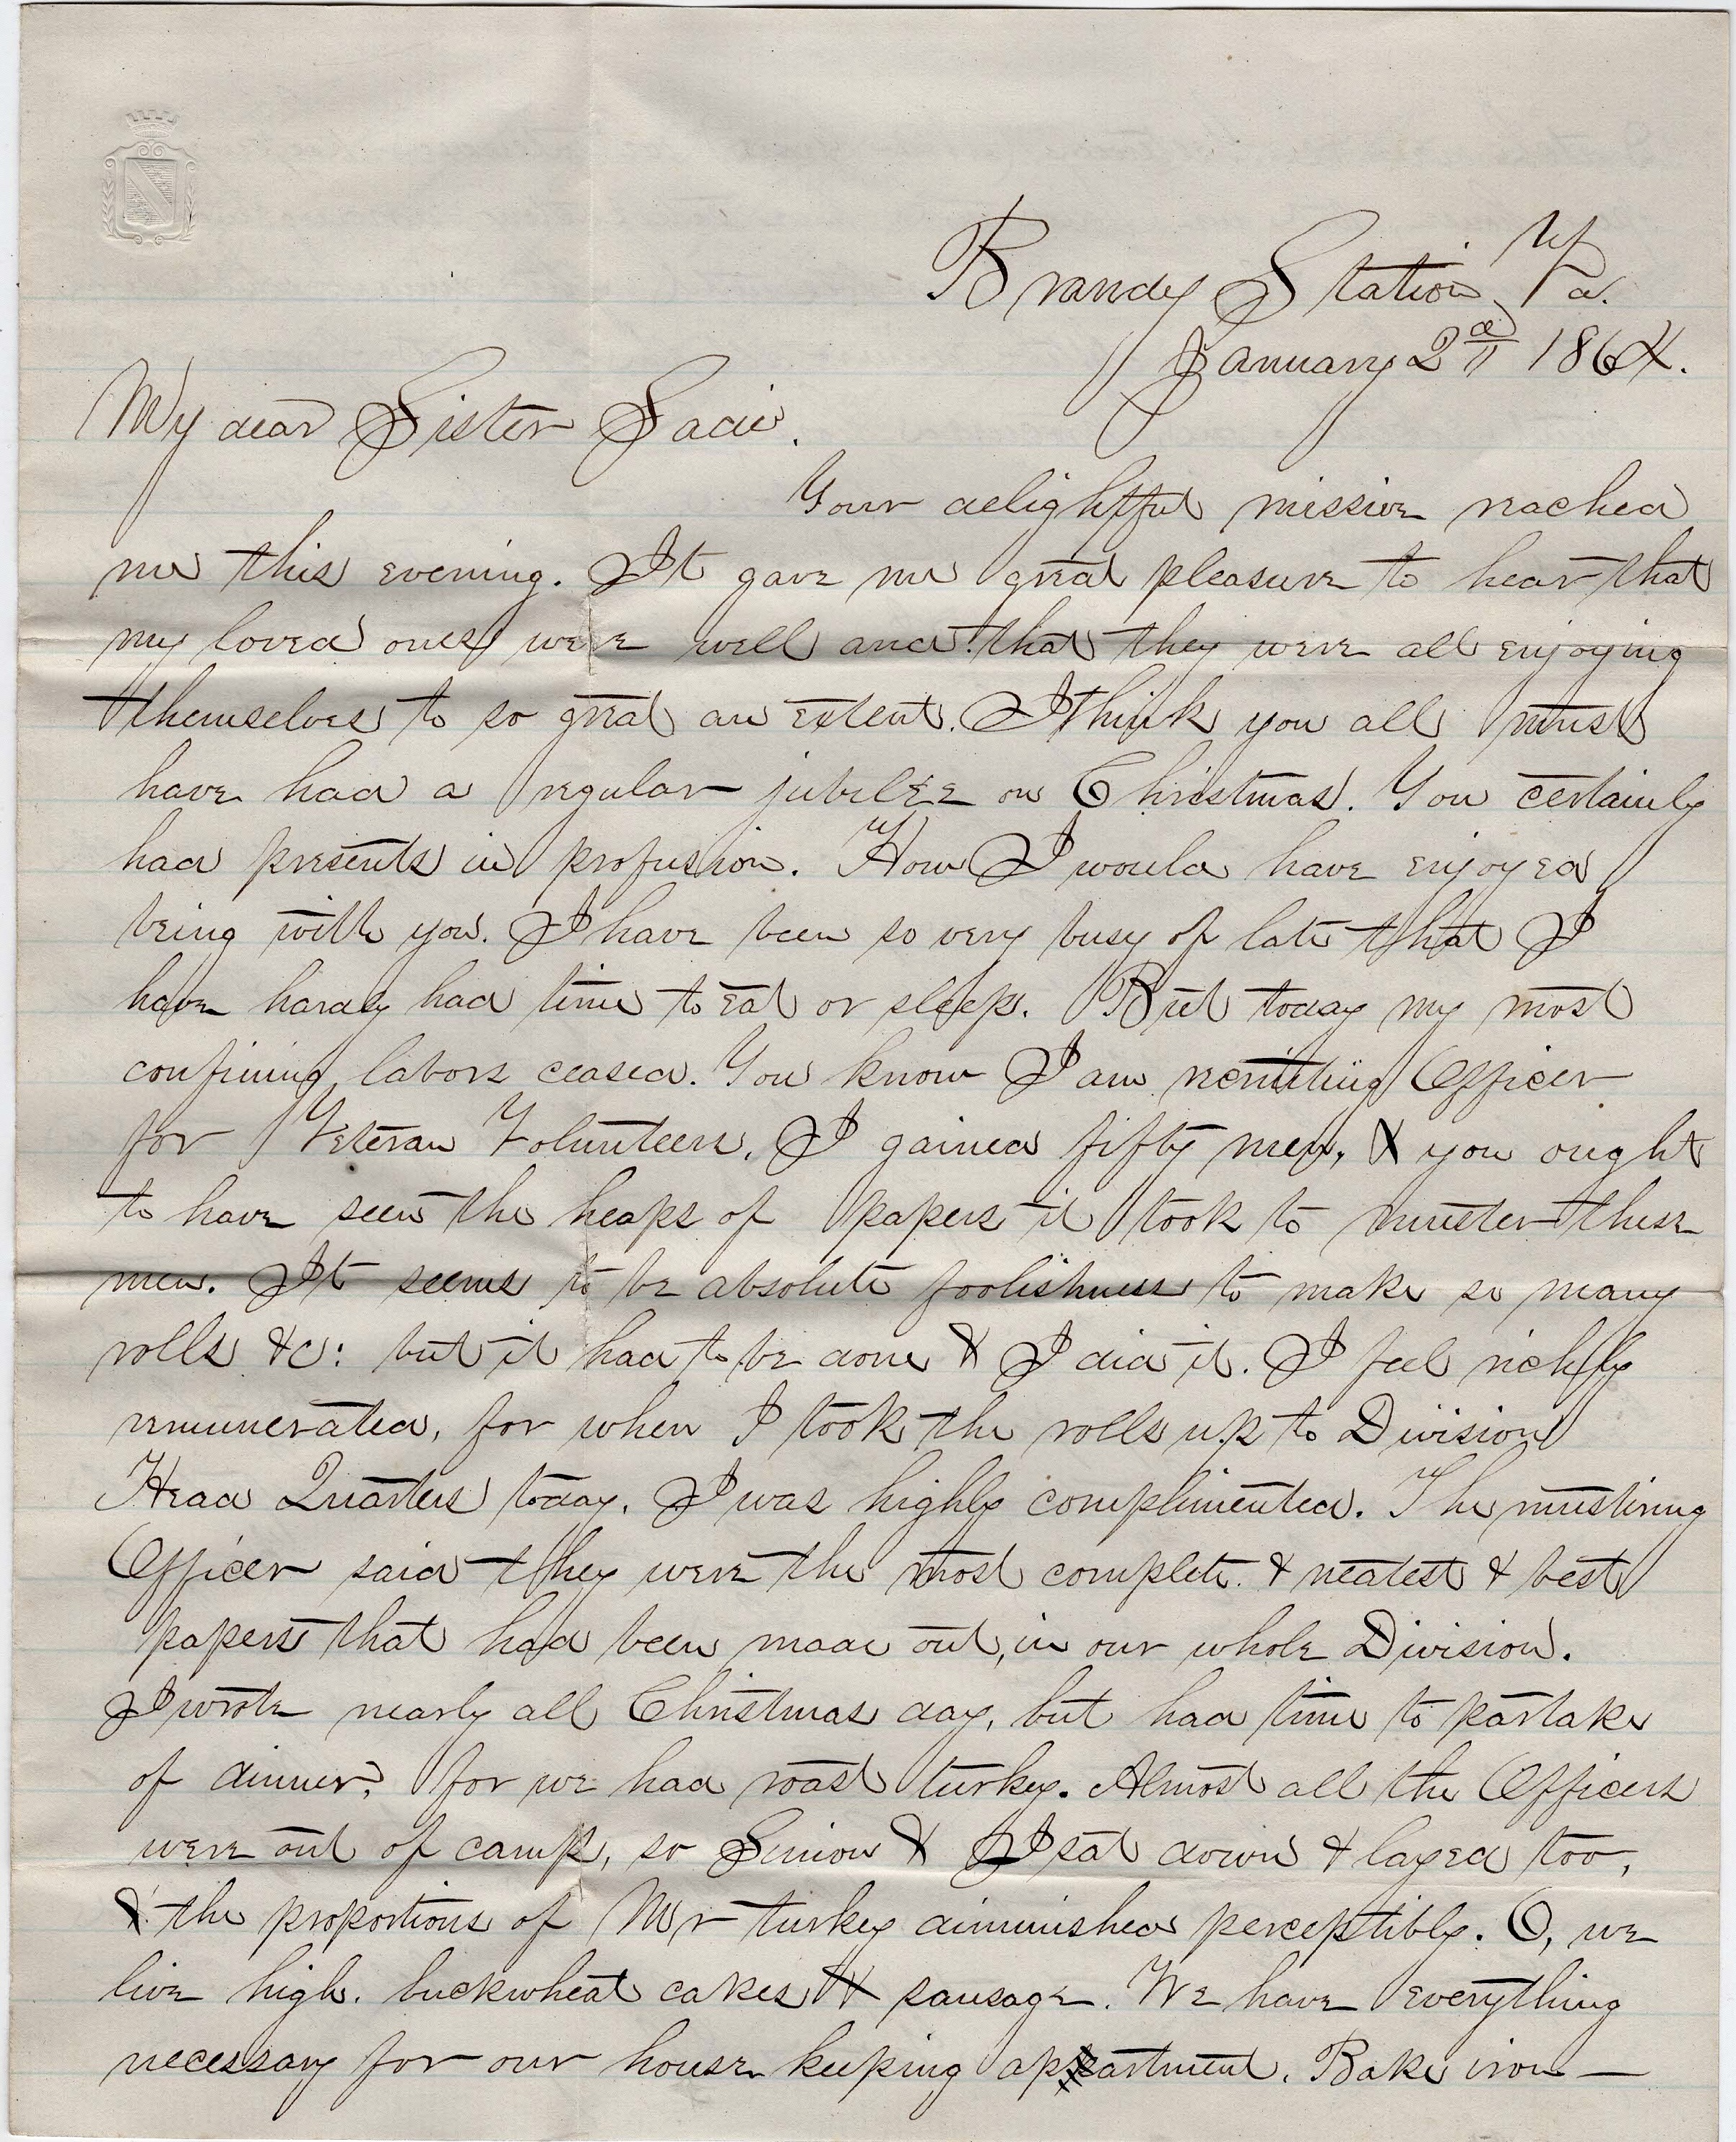 Brandy Station, Va.
January 2d 1864.
My dear Sister Sadie.
Your delightful missive reached
me this evening. It gave me great pleasure to hear that
my loved ones were well and that they were all enjoying
themselves to so great an extent. I think you all must
have had a regular jubilee on Christmas. You certainly
had presents in profusion. How I would have enjoyed
being with you. I have been so very busy of late that I
have hardly had time to eat or sleep. But today my most
confining labors ceased. You know I am recruiting Officer
for Veteran Volunteers. I gained fifty men, & you ought
to have seen the heaps of papers it took to muster these
men. It seems to be absolute foolishness to make so many
rolls &c: but it had to be done & I did it. I feel richly
remunerated, for when I took the rolls up to Division
Head Quarters today, I was highly complimented. The mustering
Officer said they were the most complete & neatest & best
papers that had been made out, in our whole Division.
I wrote nearly all Christmas day, but had time to partake
of dinner, for we had roast turkey. Almost all the Officers
were out of camp, so Simon & I sat down & layed too,
& the proportions of Mr turkey diminished perceptibly. O, we
live high. buckwheat cakes & sausage. We have everything
necessary for our house keeping apartment. Bake iron—